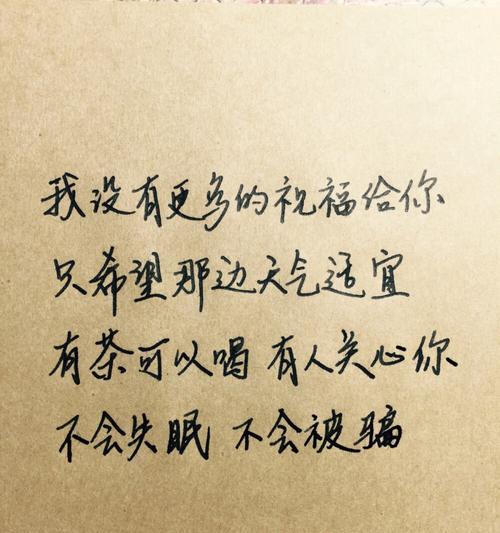 我没有更多的祝福给你
只希望那边天气适宜
有茶可以喝 有人关心你
不会失眠 不会被骗